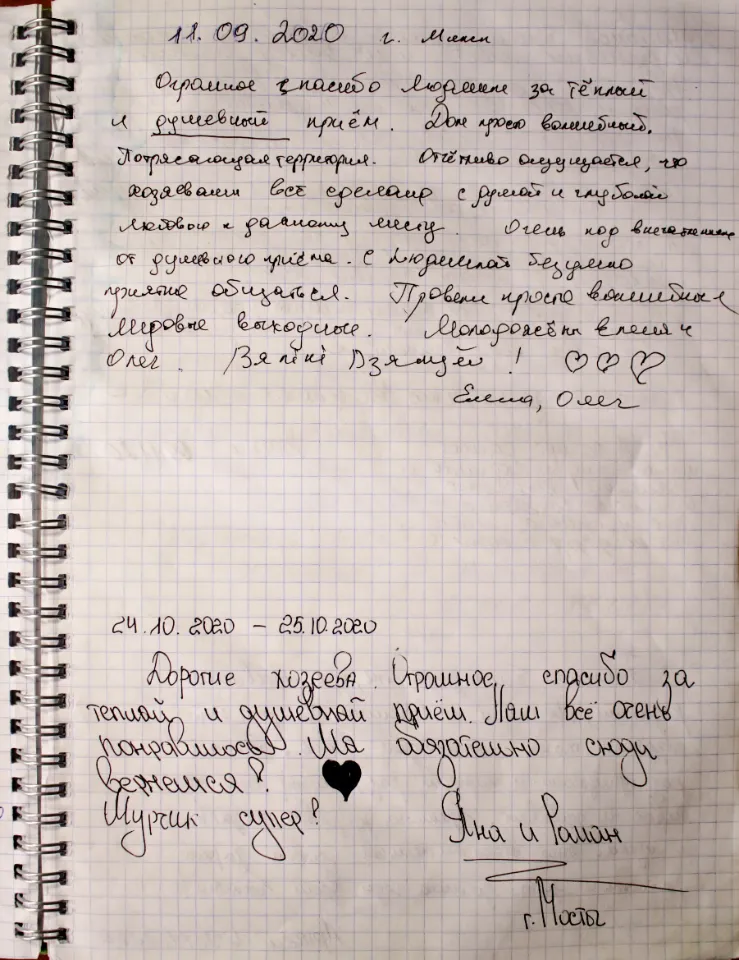 11.09.2020 г. Минск
Огромное спасибо Людмиле за тёплый
и душевный приём. Дом просто волшебный.
Потрясающая территория. Отчётливо ощущается, что
хозяевами всё сделано с душой и глубокой
любовью к данному месту. Очень под впечатлением
от душевного приёма. С Людмилой безумно
приятно общаться. Провели просто волшебные
медовые выходные. Молодожёны Елена и
Олег. Вялікі Дзякуй! ♡♡♡
Елена, Олег
24.10.2020 – 25.10.2020
Дорогие хозеева. Огромное спасибо за
теплой и душевной приём. Нам всё очень
понравилось. Мы обязательно сюди
вернемся?
Мурчик супер?
Яна и Раман
г. Мосты